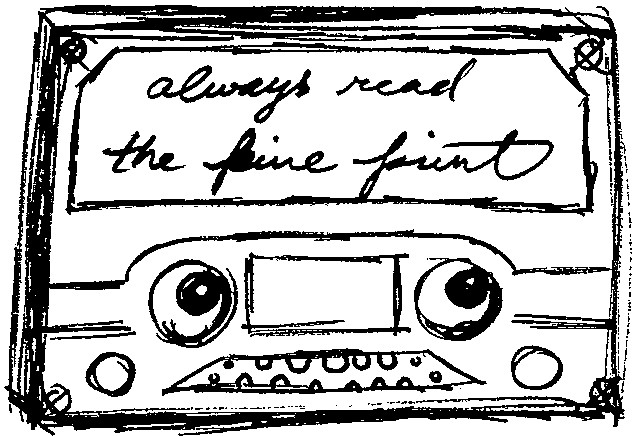 always read
the fine print